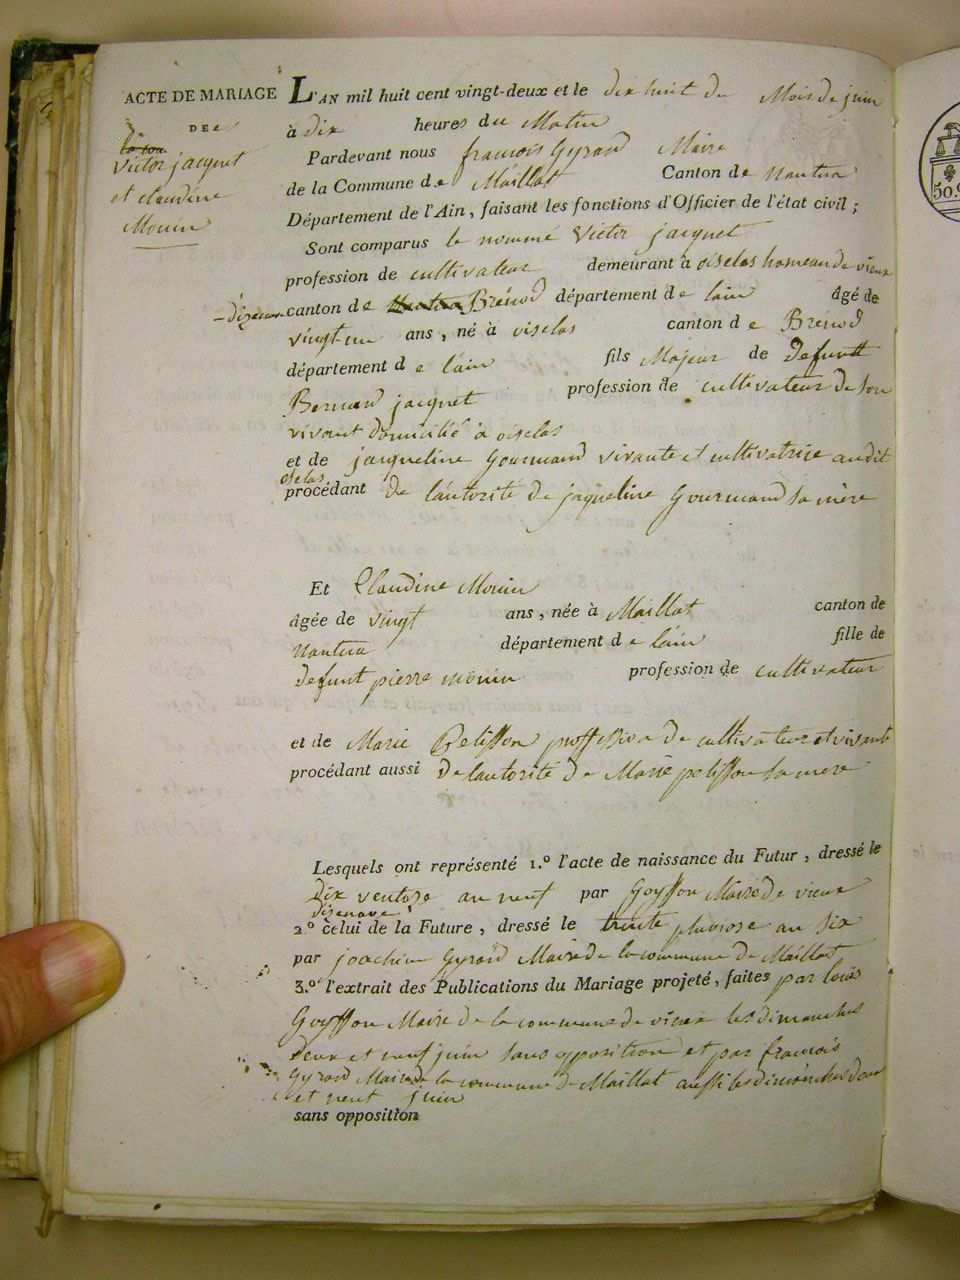 ACTE DE MARIAGE
DE
Victor jacquet
et claudine
Monin
L'AN mil huit cent vingt-deux et le dix huit du Mois de juin
à dix heures du Matin
Pardevant nous francois Gyrard Maire
de la Commune de Maillat Canton de Nantua
Département de l'Ain, faisant les fonctions d'Officier de l'état civil;
Sont comparus le nommé Victor jacquet
profession de cultivateur demeurant à oiselas hameau de vieux
canton de Brénod département de lain âgé de
vingt-un ans, né à oiselas canton de Brénod
département de lain fils Majeur de defunt
Bernard jacquet profession de cultivateur de son
vivant domicilié à oiselas
et de jacqueline Gourmand vivante et cultivatrice audit
oselas
procédant de lautorité de jaqueline Gourmand sa mère
Et Claudine Monin
âgée de vingt ans, née à Maillat canton de
Nantua département de lain fille de
defunt pierre monin profession de cultivateur
et de Marie Pelisson proffession de cultivateur et vivante
procédant aussi de lautorité de Marie pelisson sa mere
Lesquels ont représenté 1.º l'acte de naissance du Futur, dressé le
Dix ventose an neuf par Goyffon Maire de vieux
disenave
2.º celui de la Future, dressé le trente pluviose an dix
par joachim Gyrard Maire de la commune de Maillat
3.º l'extrait des Publications du Mariage projeté, faites par louis
Goyffon Maire de la commune de vieux les dimanches
deux et neuf juin sans opposition et par francois
Gyrard Maire de la commune de Maillat aussi les dimanches deux
et neuf juin
sans opposition